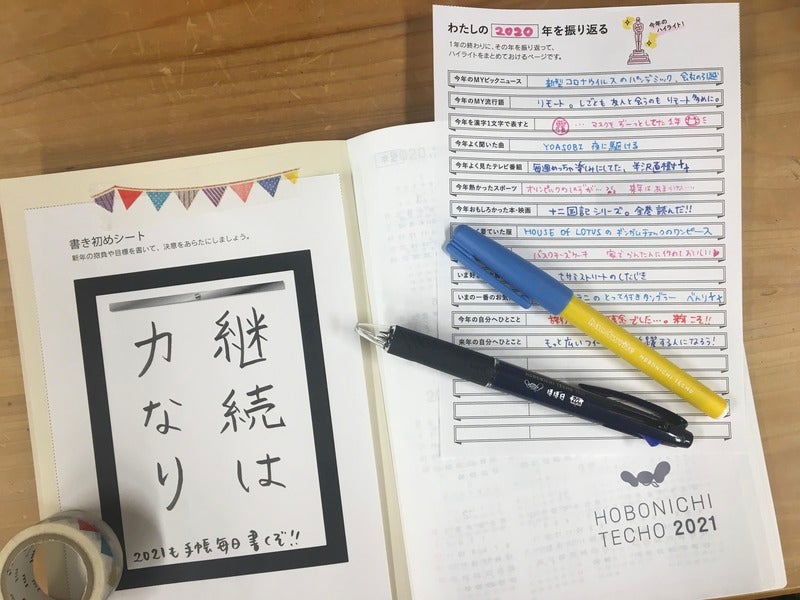 書き初めシート
新年の抱負や目標を書いて、決意をあらたにしましょう。
継続は
力なり
2021も手帳毎日書くぞ!!
わたしの 2020 年を振り返る
1年の終わりに、その年を振り返って、
ハイライトをまとめておけるページです。
今年の
ハイライト!
今年のMYビックニュース 新型コロナウイルスのパンデミック、
今年のMY流行語 リモート。しごとも友人と会うのもリモート多めに。
今年を漢字1文字で表すと … マスクをずーっとしてた1年
今年よく聞いた曲 YOASOBI 夜に駆ける
今年よく見たテレビ番組 毎週めっちゃ楽しみにしてた、半沢直樹
今年熱かったスポーツ オリンピックの
今年おもしろかった本・映画 十二国記シリーズ。全巻読んだ!!
着ていた服 HOUSE OF LOTUSのギンガムチェックのワンピース
バスクチーズケーキ 家でかんたんに作れておいしい
いま好 セサミストリートのしたじき
いまの一番のお気 のとって付きタンブラー べんり
今年の自分へひとこと でした…。来年こそ!!
来年の自分へひとこと もっと広い する人になろう!
HOBONICHI TECHO
HOBONICHI
TECHO 2021